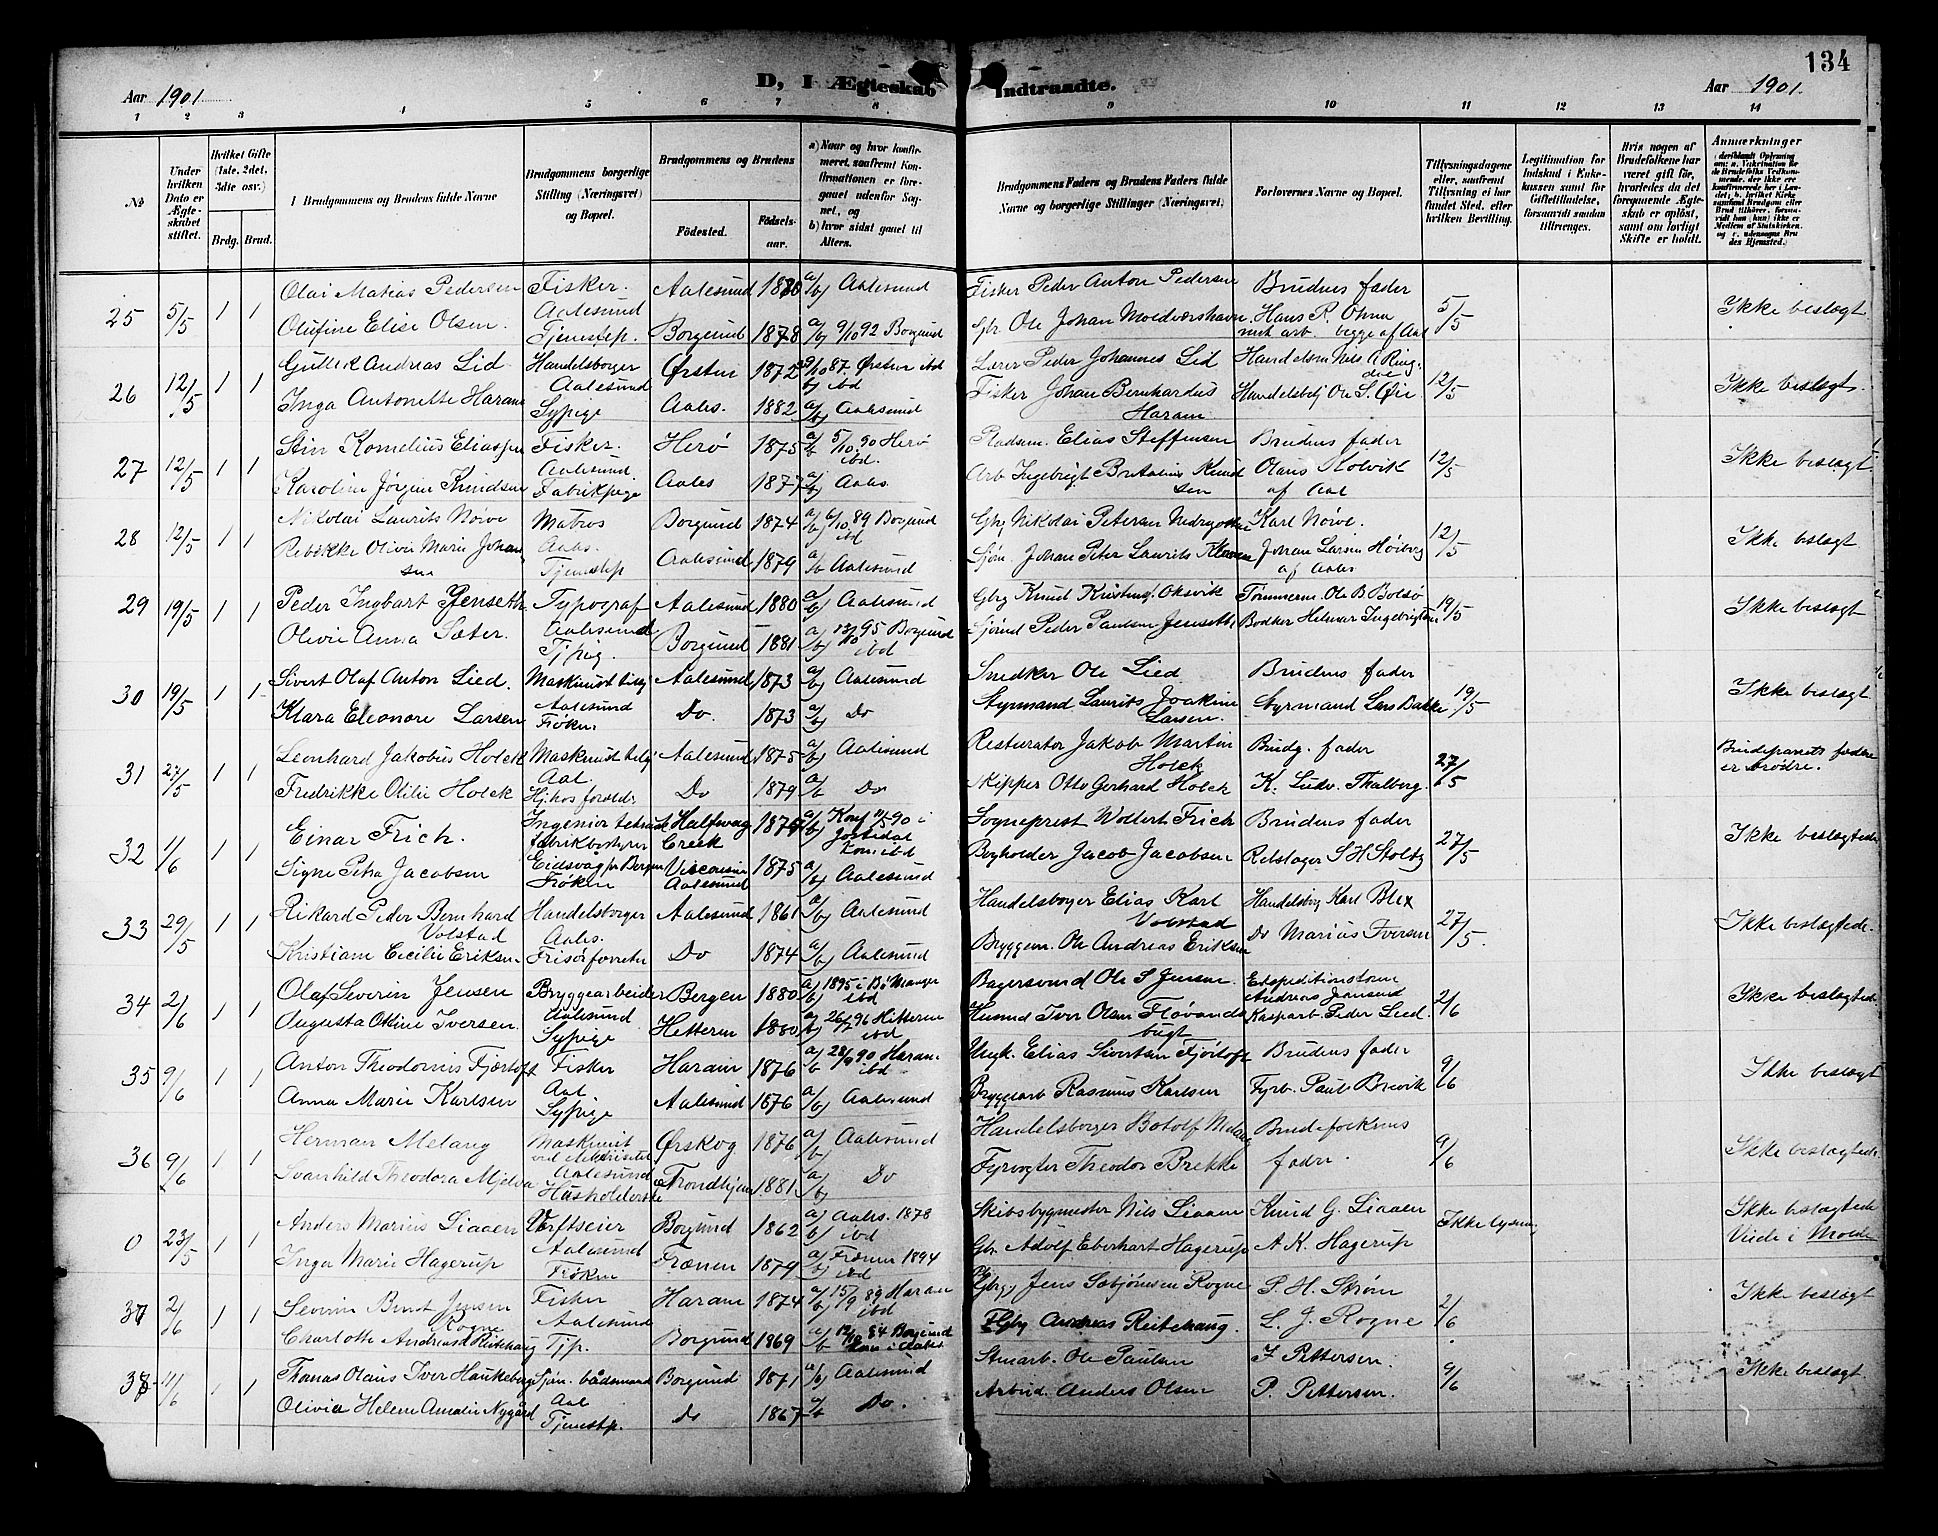 134
Aar 1901
D, I Ægteskab Indtraadte.
Aar 1901.
1 2 3 4 5 6 7 8 9 10 11 12 13 14
№
Under hvilken Dato er Ægteskabet stiftet.
Hvilket Gifte (1ste, 2det, 3die osv.)
Brdg. Brud.
Brudgommens og Brudens fulde Navne
Brudgommens borgerlige Stilling (Næringsvei) og Bopæl.
Brudgommens og Brudens
Fødested. Fødselsaar.
a) Naar og hvor konfirmeret, saafremt Konfirmationen er foregaaet udenfor Sognet, og
b) hvor sidst gaaet til Alters.
Brudgommens Faders og Brudens Faders fulde Navne og borgerlige Stillinger (Næringsvei).
Forlovernes Navne og Bopæl.
Tillysningsdagene eller, saafremt Tillysning ei har fundet Sted, efter hvilken Bevilling.
Legitimation for Indskud i Enkekassen samt for Giftetilladelse, forsaavidt saadan tiltrænges.
Hvis nogen af Brudefolkene har været gift før, hvorledes da det foregaaende Ægteskab er opløst, samt om lovligt Skifte er holdt.
Anmærkninger
25 5/5 1 1 Olai Matias Pedersen Fisker. Aalesund 1880 a/b) Aalesund Fisker Peder Anton Pedersen Brudens fader 5/5 Ikke beslægt
Aalesund
Olufine Elise Olsen. Tjenestep. Borgund 1878 a/b) 9/10 92 Borgund Gbr. Ole Johan Moldværshavn Hans P. begge af Aal
26 12/5 1 1 Gullek Andreas Lid Handelsborger Ørsten 1872 9/10 87. Ørsten ibd Lærer Peder Johannes Lid Handelsm Nils A Ringdie 12/5 Ikke beslægt.
Aalesund b) ibd
Inga Antonette Haram Sypige Aales. 1882 a/b) Aalesund Fisker Johan Bernhardus Haram Handelsbej Ole S. Øie
27 12/5 1 1 Stin Kornelius Eliassen Fisker. Herø 1875 a/b 5/10 90 Herø ibd. Pladsm. Elias Steffensen Brudens fader 12/5 Ikke beslægt
Aalesund
Karoline Jørgine Knudsen Fabrikpige Aales 1877 a/b) Aales. Arb Ingebrigt Knudsen Olaus Stolvik af Aal
28 12/5 1 1 Nikolai Laurits Nørve Matros Borgund 1874 a/b) 6/10 89 Borgund ibd Gbrg Nikolai Petersen Karl Nørve. 12/5 Ikke beslægt
Aales.
Rebekke Olivie Marie Johansen Tjenestep Aalesund 1879 a/b Aalesund Sjøm. Johan Peter Laurits Johan Larsen Høiberg af Aales
29 19/5 1 1 Peder Ingbart Jenseth Typograf Aalesund 1880 a/b) Aalesund Gbrg Knud Kristens. Oksvik Tømmerm. Ole B Bolsø 19/5 Ikke beslægt
Aalesund
Olivie Anna Sæter. Tjpig. Borgund 1881 a) 13/10 95 Borgund ibd Sjømd Peder Paulsen Jenseth Bødker Helmar Ingebrigtsen
30 19/5 1 1 Sivert Olaf Anton Lied. Maskinist Aalesund 1873 a/b) Aalesund Snedker Ole Lied Brudens fader 19/5 Ikke beslægt
Aalesund
Klara Eleonore Larsen Frøken Do. 1873 a/b) Do Styrmand Laurits Joakim Larsen. Styrmand Lars Bakke
31 27/5 1 1 Leonhard Jakobus Holck Maskinist Aalesund 1875 a/b) Aalesund Resturatør Jakob Martin Holck Brudg. fader 27/5 Brudeparrets fædre er brødre.
Aal.
Fredrikke Otilie Holck Hjhos foreldr Do 1879 a/b Do Skipper Otto Gerhard Holck K. Ludv. Thalberg.
32 1/6 1 1 Einar Frich. Ingeniør Halfway Creek 1875 a/b) Konf 90 i Jostedal Kom ibd Sogneprest Wollert Frich Brudens fader 27/5 Ikke beslægtede
fabrikbestyrer
Eidsvaag pr Bergen Visconsin
Signe Petra Jacobsen Frøken Aalesund 1875 a/b) Aalesund Boghoder Jacob Jacobsen Rebslager S H Stoltz
33 29/5 1 1 Rikard Peder Bernhard Volstad Handelsborger Aalesund 1861 a/b) Aalesund Handelsborger Elias Karl Volstad Handelsbrg Karl Blex 27/5. Ikke beslægtede.
Aales.
Kristiane Cecilie Eriksen Frisørforretn Do 1874 a/b) Aalesund Bryggem. Ole Andreas Eriksen Do Marius Iversen
34 2/6 1 1 Olaf Severin Jensen Bryggearbeider Bergen 1880 a/b) 1895 i Bø Manger ibd Bagersvend Ole S Jensen. Expeditionsform Andreas 2/6 Ikke beslægtede.
Aalesund.
Augusta Otline Iversen. Sypige Hetteren 1880 a/b) 26/7 96 Hitteren ibd Husmd Iver Olsen Fløvandsbugt Kasparb. Peder Lied.
35 9/6 1 1 Anton Theodornis Fjærtoft Fisker Haram 1876 a/b 28/9 90 Haram ibd Ungk. Elias Sivertsen Fjørtoft Brudens fader 9/6 Ikke beslægt
Aal
Anna Marie Karlsen Sypige Aalesund 1876 a/b) Aalesund Bryggearb Rasmus Karlsen Fyrb. Paul Brevik
36 9/6 1 1 Herman Melang Maskinist Ørskog 1876 a/b) Aalesund Handelsborger Botolf Melang Brudefolkenes 9/6 Ikke beslægtede.
Aalesund
Svanhild Theodora Mjelva Husholderske Trondhjem 1881 a/b) Do Fyrvogter Theodor Brekke fader.
0 23/5 1 1 Anders Marius Liaaen Værftseier Borgund 1862 a) Aales. 1878 b) ibd Skibsbygmester Nils Liaaen Knud G. Liaaen Ikke lysning Ikke beslægtede
Aalesund Viede i Molde
Inga Marie Hagerup Frøken Frænen 1879 a) Frænen 1894 b) ibd Gbr. Adolf Eberhart Hagerup A. K. Hagerup
37 2/6 1 1 Severin Bernt Jensen Rogne Fisker Haram 1874 a/b) 15/9 89 Haram ibd Gbrgj Jens Sæbjørnsen Rogne P. H. Strøm 2/6 Ikke beslægt
Aalesund
Charlotte Andreasd Reitehaug Tjp. Borgund 1869 a/b 84 Borgund Kom i Aales Gbr Andreas Reitehaug. L. J. Rogne
38 11/6 1 1 Thomas Olaus Iver Haukeberg Sjøm. Borgund 1871 a/b) Aalesund Stuarb. Ole Paulsen I Pettersen. 9/6 Ikke beslægt
Aal
Olivia Helene Amalie Nygård Tjenestp. Do 1867 a/b Do. Arbeid. Anders Olsen P. Pettersen.